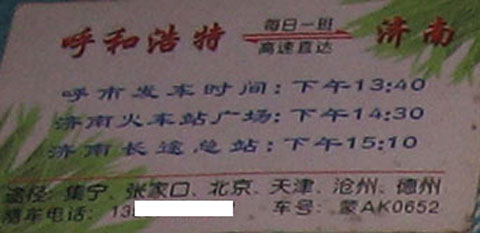 呼和浩特 每日一班 济南
高速直达
呼市发车时间:下午13:40
济南火车站广场:下午14:30
济南长途总站:下午15:10
途径:集宁、张家口、北京、天津、沧州、德州
随车电话:13 车号:蒙AK0652